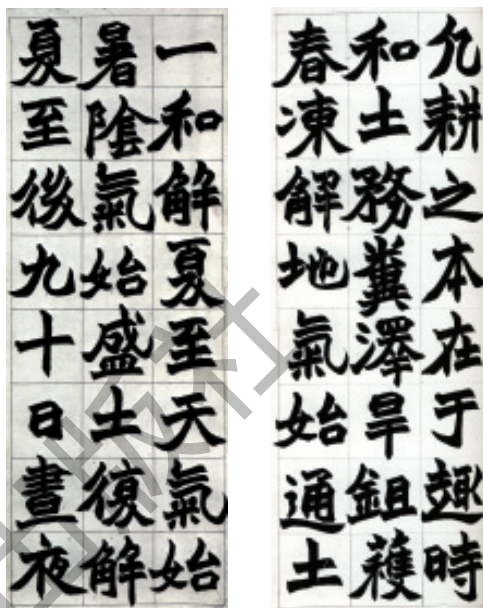 凡耕之本在于趣時
和土務糞澤旱鉏穫
春凍解地氣始通土
一和解夏至天氣始
暑陰氣始盛土復解
夏至後九十日晝夜
版社